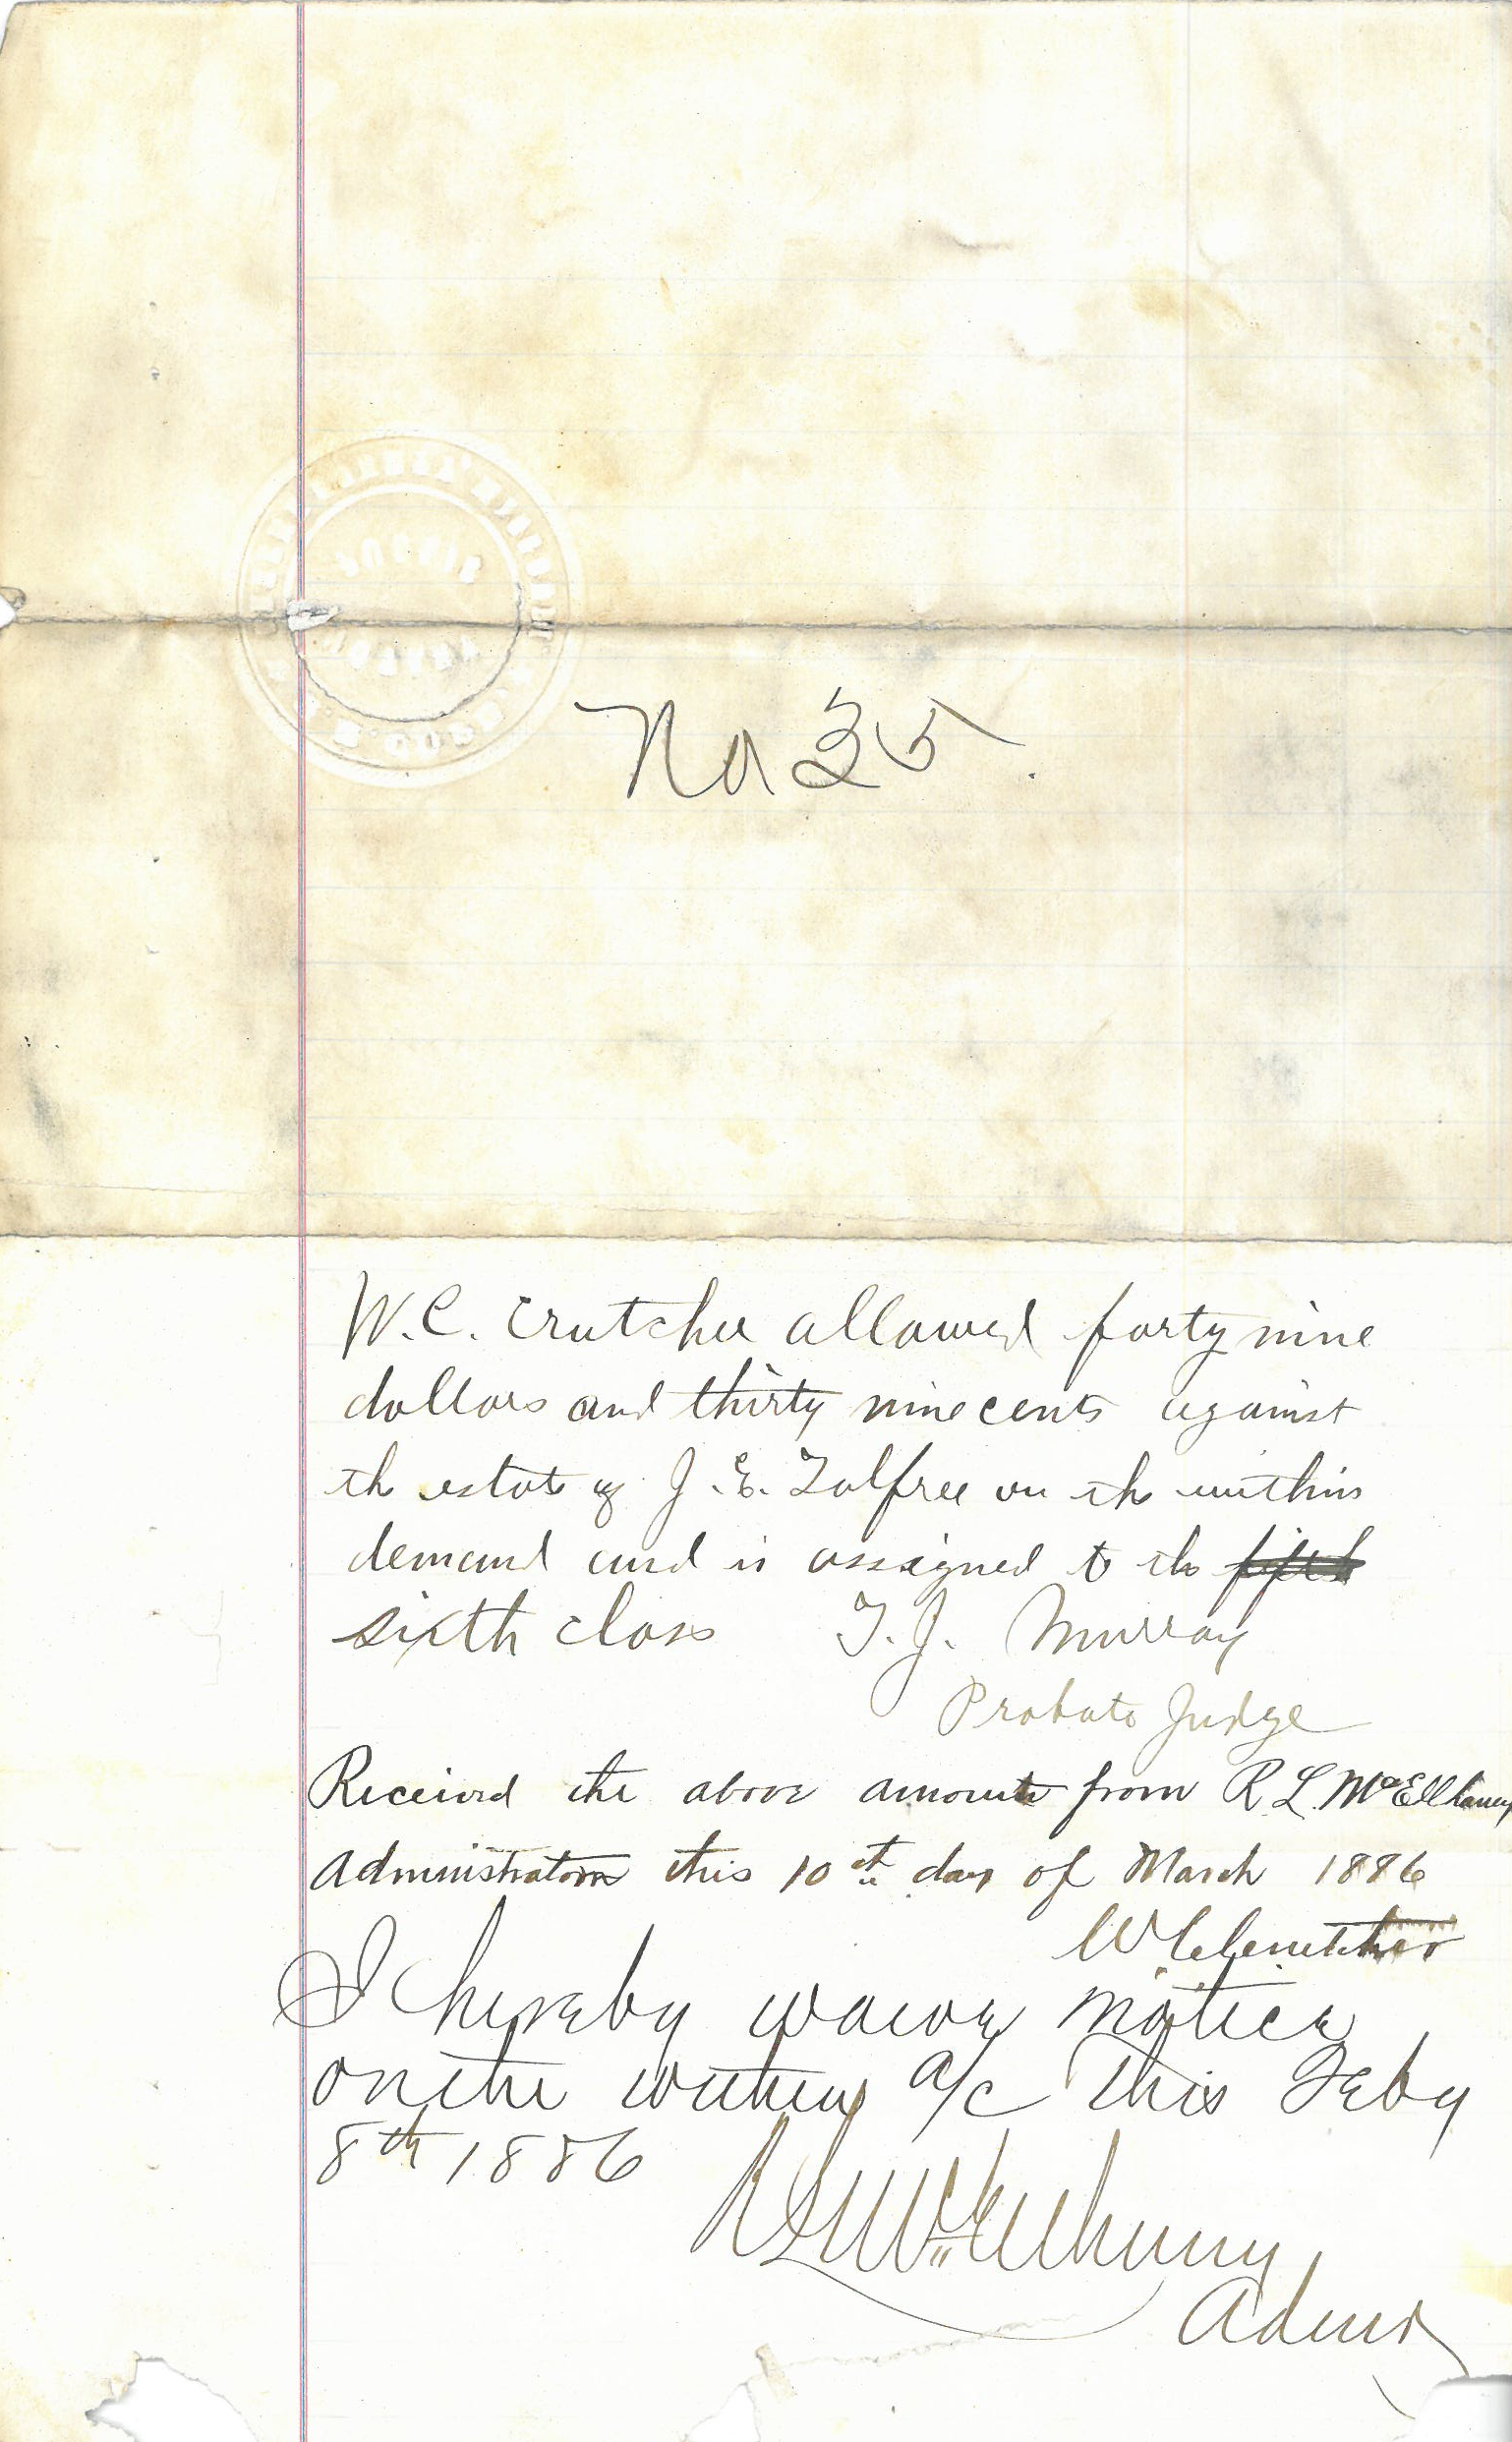 No 35.
W.C. Crutcher allowed forty nine
dollars and thirty nine cents against
the estate of J.E. Tolfree on the within
demand and is assigned to the fifth
sixth class T.J. Murray
Probate Judge
Received the above amount from R L. McElhaney
Administrator this 10th day of March 1886
W C Crutcher
I hereby waive notice
on the within a/c This Feby
8th 1886
R L McElhaney
Admr